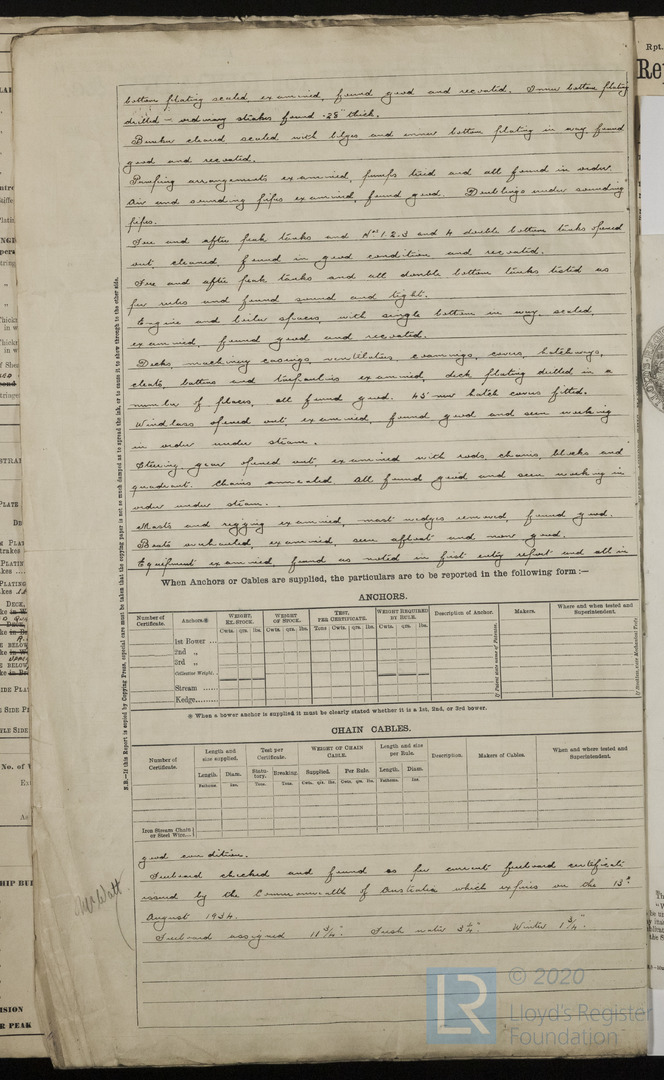 bottom plating scaled, examined, found good and recoated. Inner bottom plating
drilled – ordinary strakes found .28" thick.
Bunker cleared scaled with bilges and inner bottom plating in way found
good and recoated.
Pumping arrangements examined, pumps tried and all found in order.
Air and sounding pipes examined, found good. Doublings under sounding
pipes.
Fore and after peak tanks and Nos 1 2 3 and 4 double bottom tanks opened
out, cleaned found in good condition and recoated.
Fore and after peak tanks and all double bottom tanks tested as
per rules and found sound and tight.
Engine and boiler spaces, with single bottom in way, scaled,
examined, found good and recoated.
Decks, machinery casings, ventilators, coamings, covers, hatchways,
cleats, battens and tarpaulins examined, deck plating drilled in a
number of places, all found good. 45 new hatch covers fitted.
Windlass opened out, examined, found good and seen working
in order under steam.
Steering gear opened out, examined with rods, chains, blocks and
quadrant. Chains annealed. All found good and seen working in
order under steam.
Masts and rigging examined, mast wedges removed, found good.
Boats overhauled, examined, seen afloat and now good.
Equipment examined found as noted in first entry report and all in
When Anchors or Cables are supplied, the particulars are to be reported in the following form :—
ANCHORS.
Number of Certificate.
Anchors.※
WEIGHT, EX. STOCK.
WEIGHT OF STOCK.
TEST, PER CERTIFICATE.
WEIGHT REQUIRED BY RULE.
Description of Anchor.
Makers.
Where and when tested and Superintendent.
Cwts. qrs. lbs. Cwts. qrs. lbs. Tons Cwts. qrs. lbs. Cwts. qrs. lbs.
1st Bower ...
2nd „
3rd „
Collective Weight.
Stream ......
Kedge........
If Patent state name of Patentee.
※ When a bower anchor is supplied it must be clearly stated whether it is a 1st, 2nd, or 3rd bower.
CHAIN CABLES.
Number of Certificate.
Length and size supplied.
Test per Certificate.
WEIGHT OF CHAIN CABLE.
Length and size per Rule.
Description.
Makers of Cables.
When and where tested and Superintendent.
Length. Diam. Statutory. Breaking. Supplied. Per Rule. Length. Diam.
Fathoms. Ins. Tons. Tons. Cwts. qrs. lbs. Cwts. qrs. lbs. Fathoms. Ins.
Iron Stream Chain or Steel Wire...
good condition.
Freeboard checked and found as per current freeboard certificate
issued by the Commonwealth of Australia which expires on the 13th
August 1934.
Freeboard assigned 11 3/4". Fresh water 3 3/4". Winter 1 3/4".
McWatt
N.B.—If this Report is copied by Copying Press, especial care must be taken that the copying paper is not so much damped as to spread the ink, or to cause it to show through to the other side.
Rpt.
LR
© 2020
Lloyd's Register
Foundation